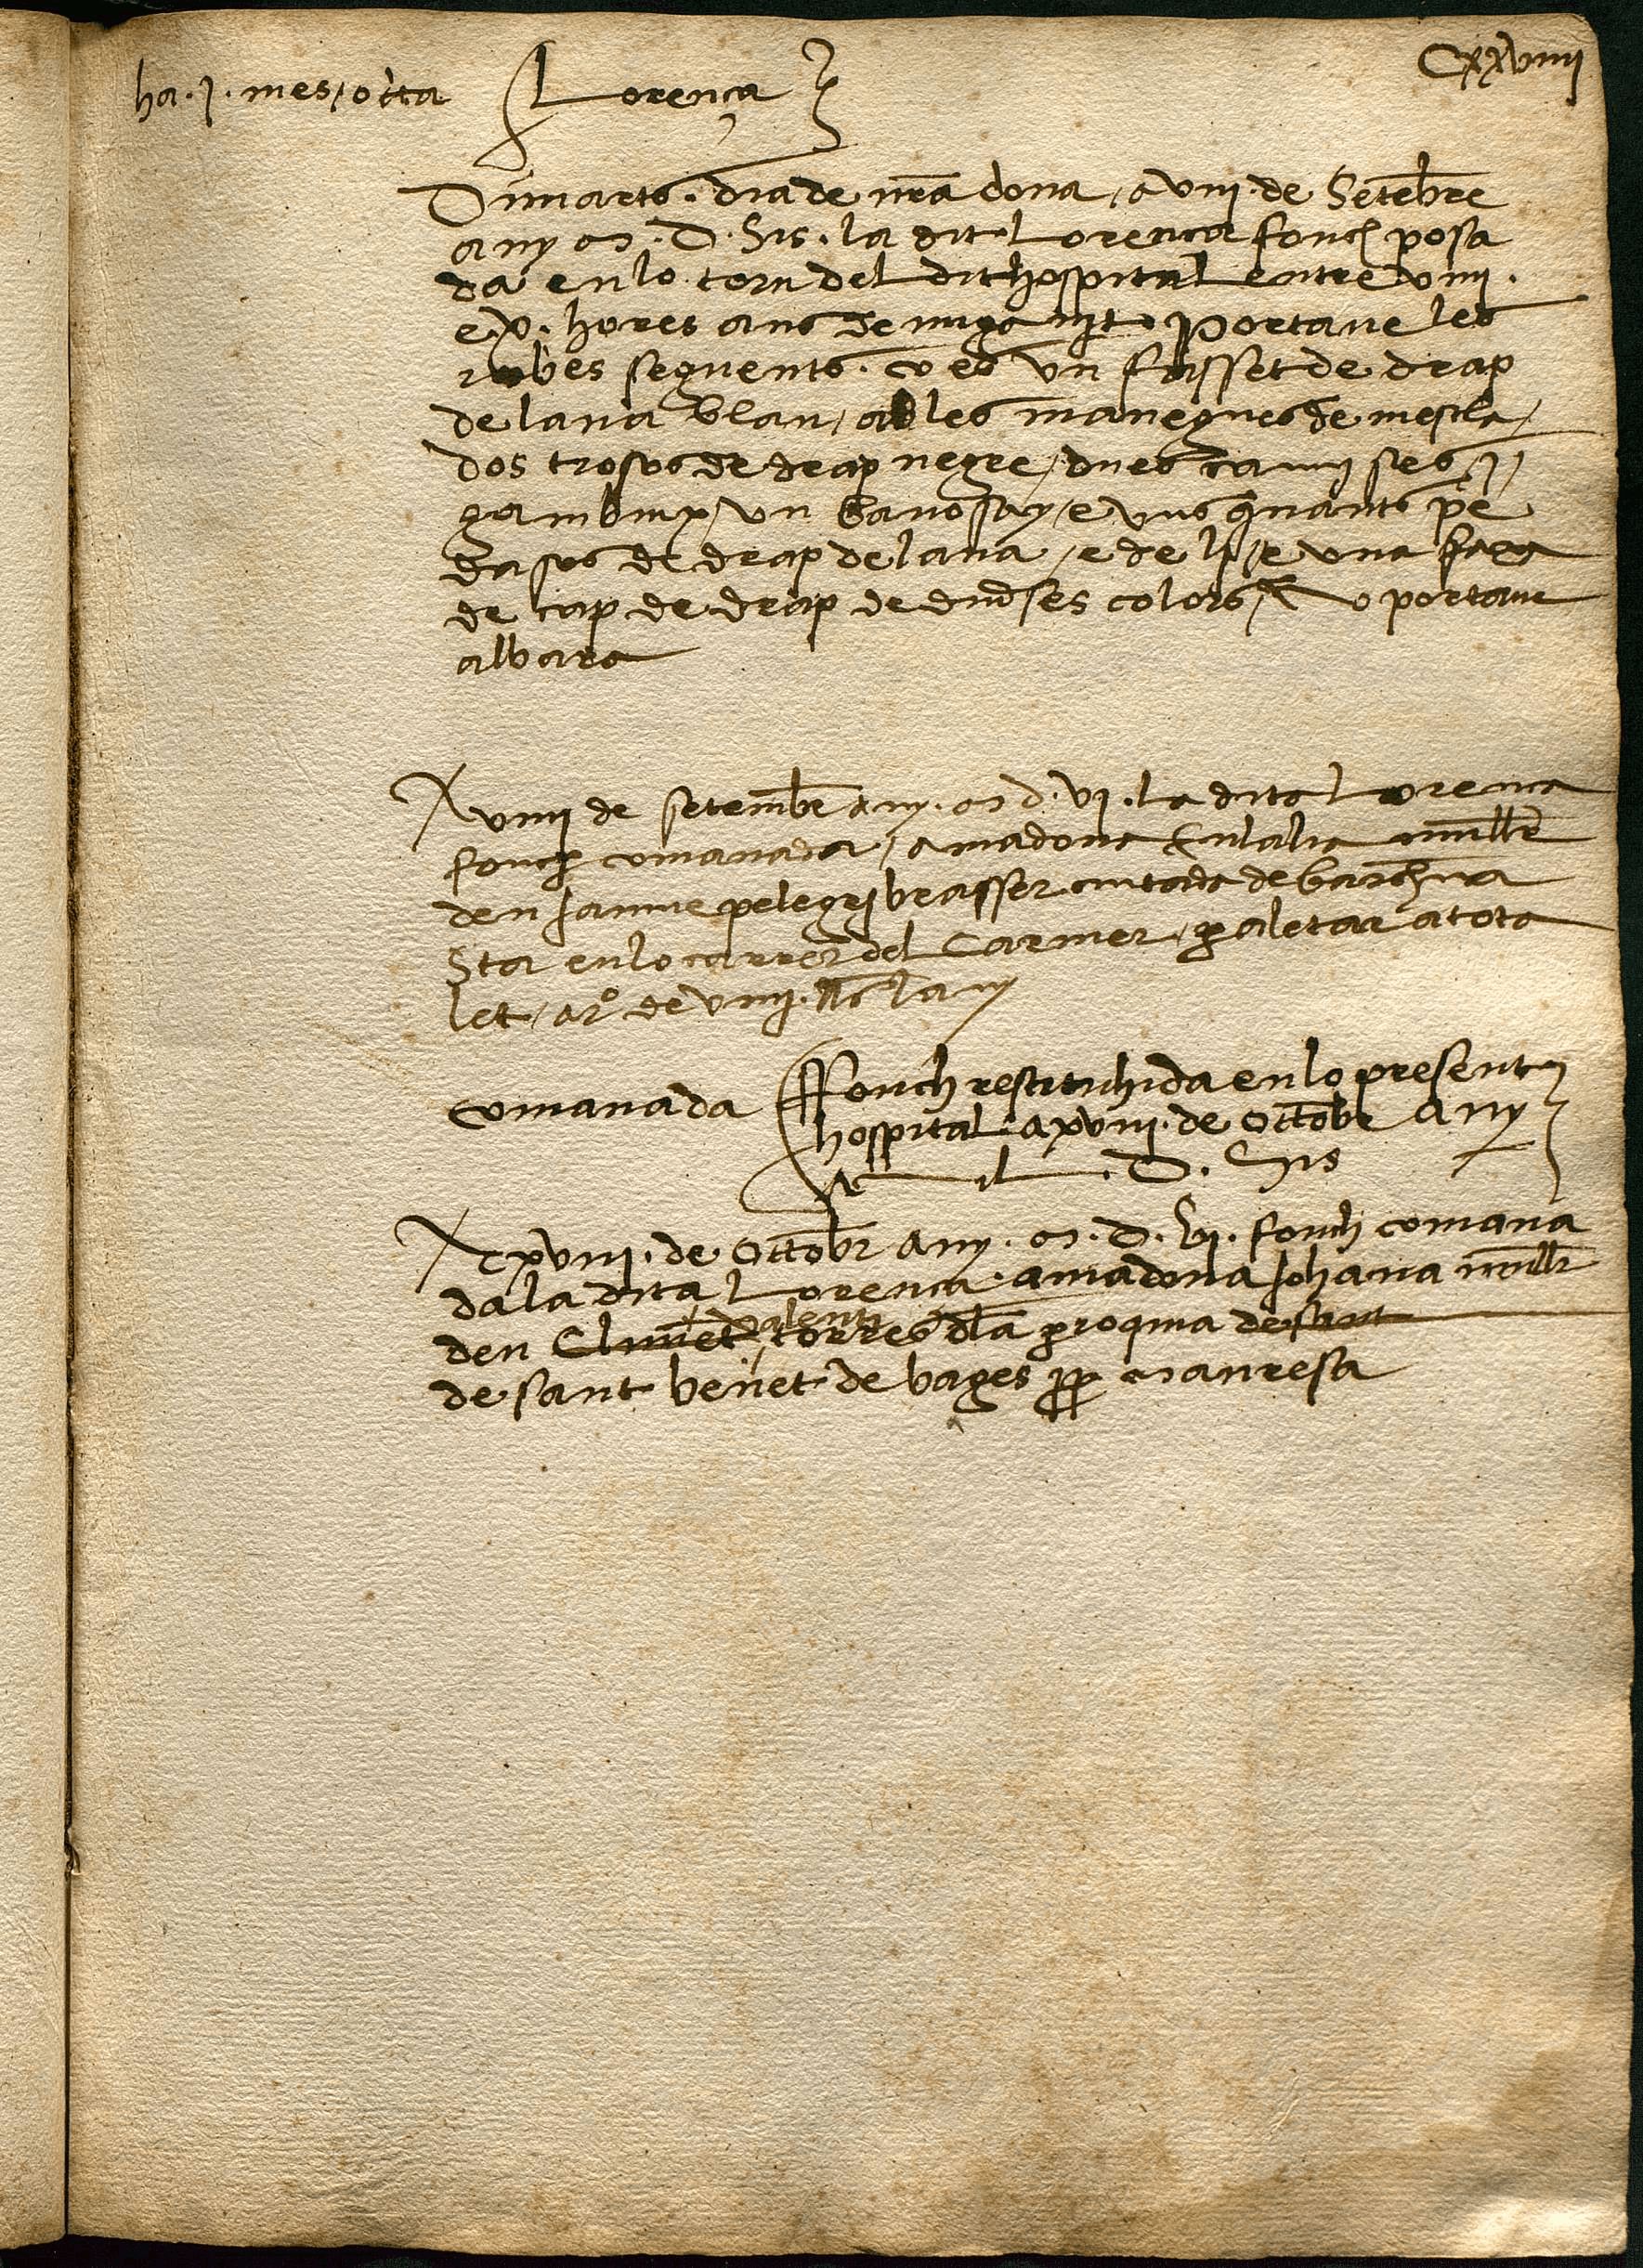 Cxxviiij
ha · j · mes / o cta
Lorença
Dimarts · dia de nr̃a dona / a viij · de Setẽbre
any M · D · Sis · la dita Lorença fonch posa
da en lo torn del dit hospital entre viiij ·
e · x · hores ans de miga nit · Portave les
robes seguents · ço es un faxset de drap
de lana blau / ab les manegues de mescla /
dos trosos de drap negre / dues camises /
gambuix / un / e uns quants pe
dasos de drap de lana / e de li / e una
de cap de drap de diverses colors / No portave
albara
A viiij de setembre any · M d · vj · la dita Lorença
fonch comanada / a madona Eulalia muller
den Jaume pelegrj brasser ciutada de barchna
Sta en lo carrer del Carmer / per aletar a tota
let / a ro de viiij · lany
Comanada
Fonch restituhida en lo present
hospital a xviij · de Octobr any
Mil · D · Sis
A xviij · de Octobr any · M · D · vj · fonch comana
da la dita Lorença · a madona Johana mullr
den torres dla proquia de sant
de sant benet de bages pp manresa